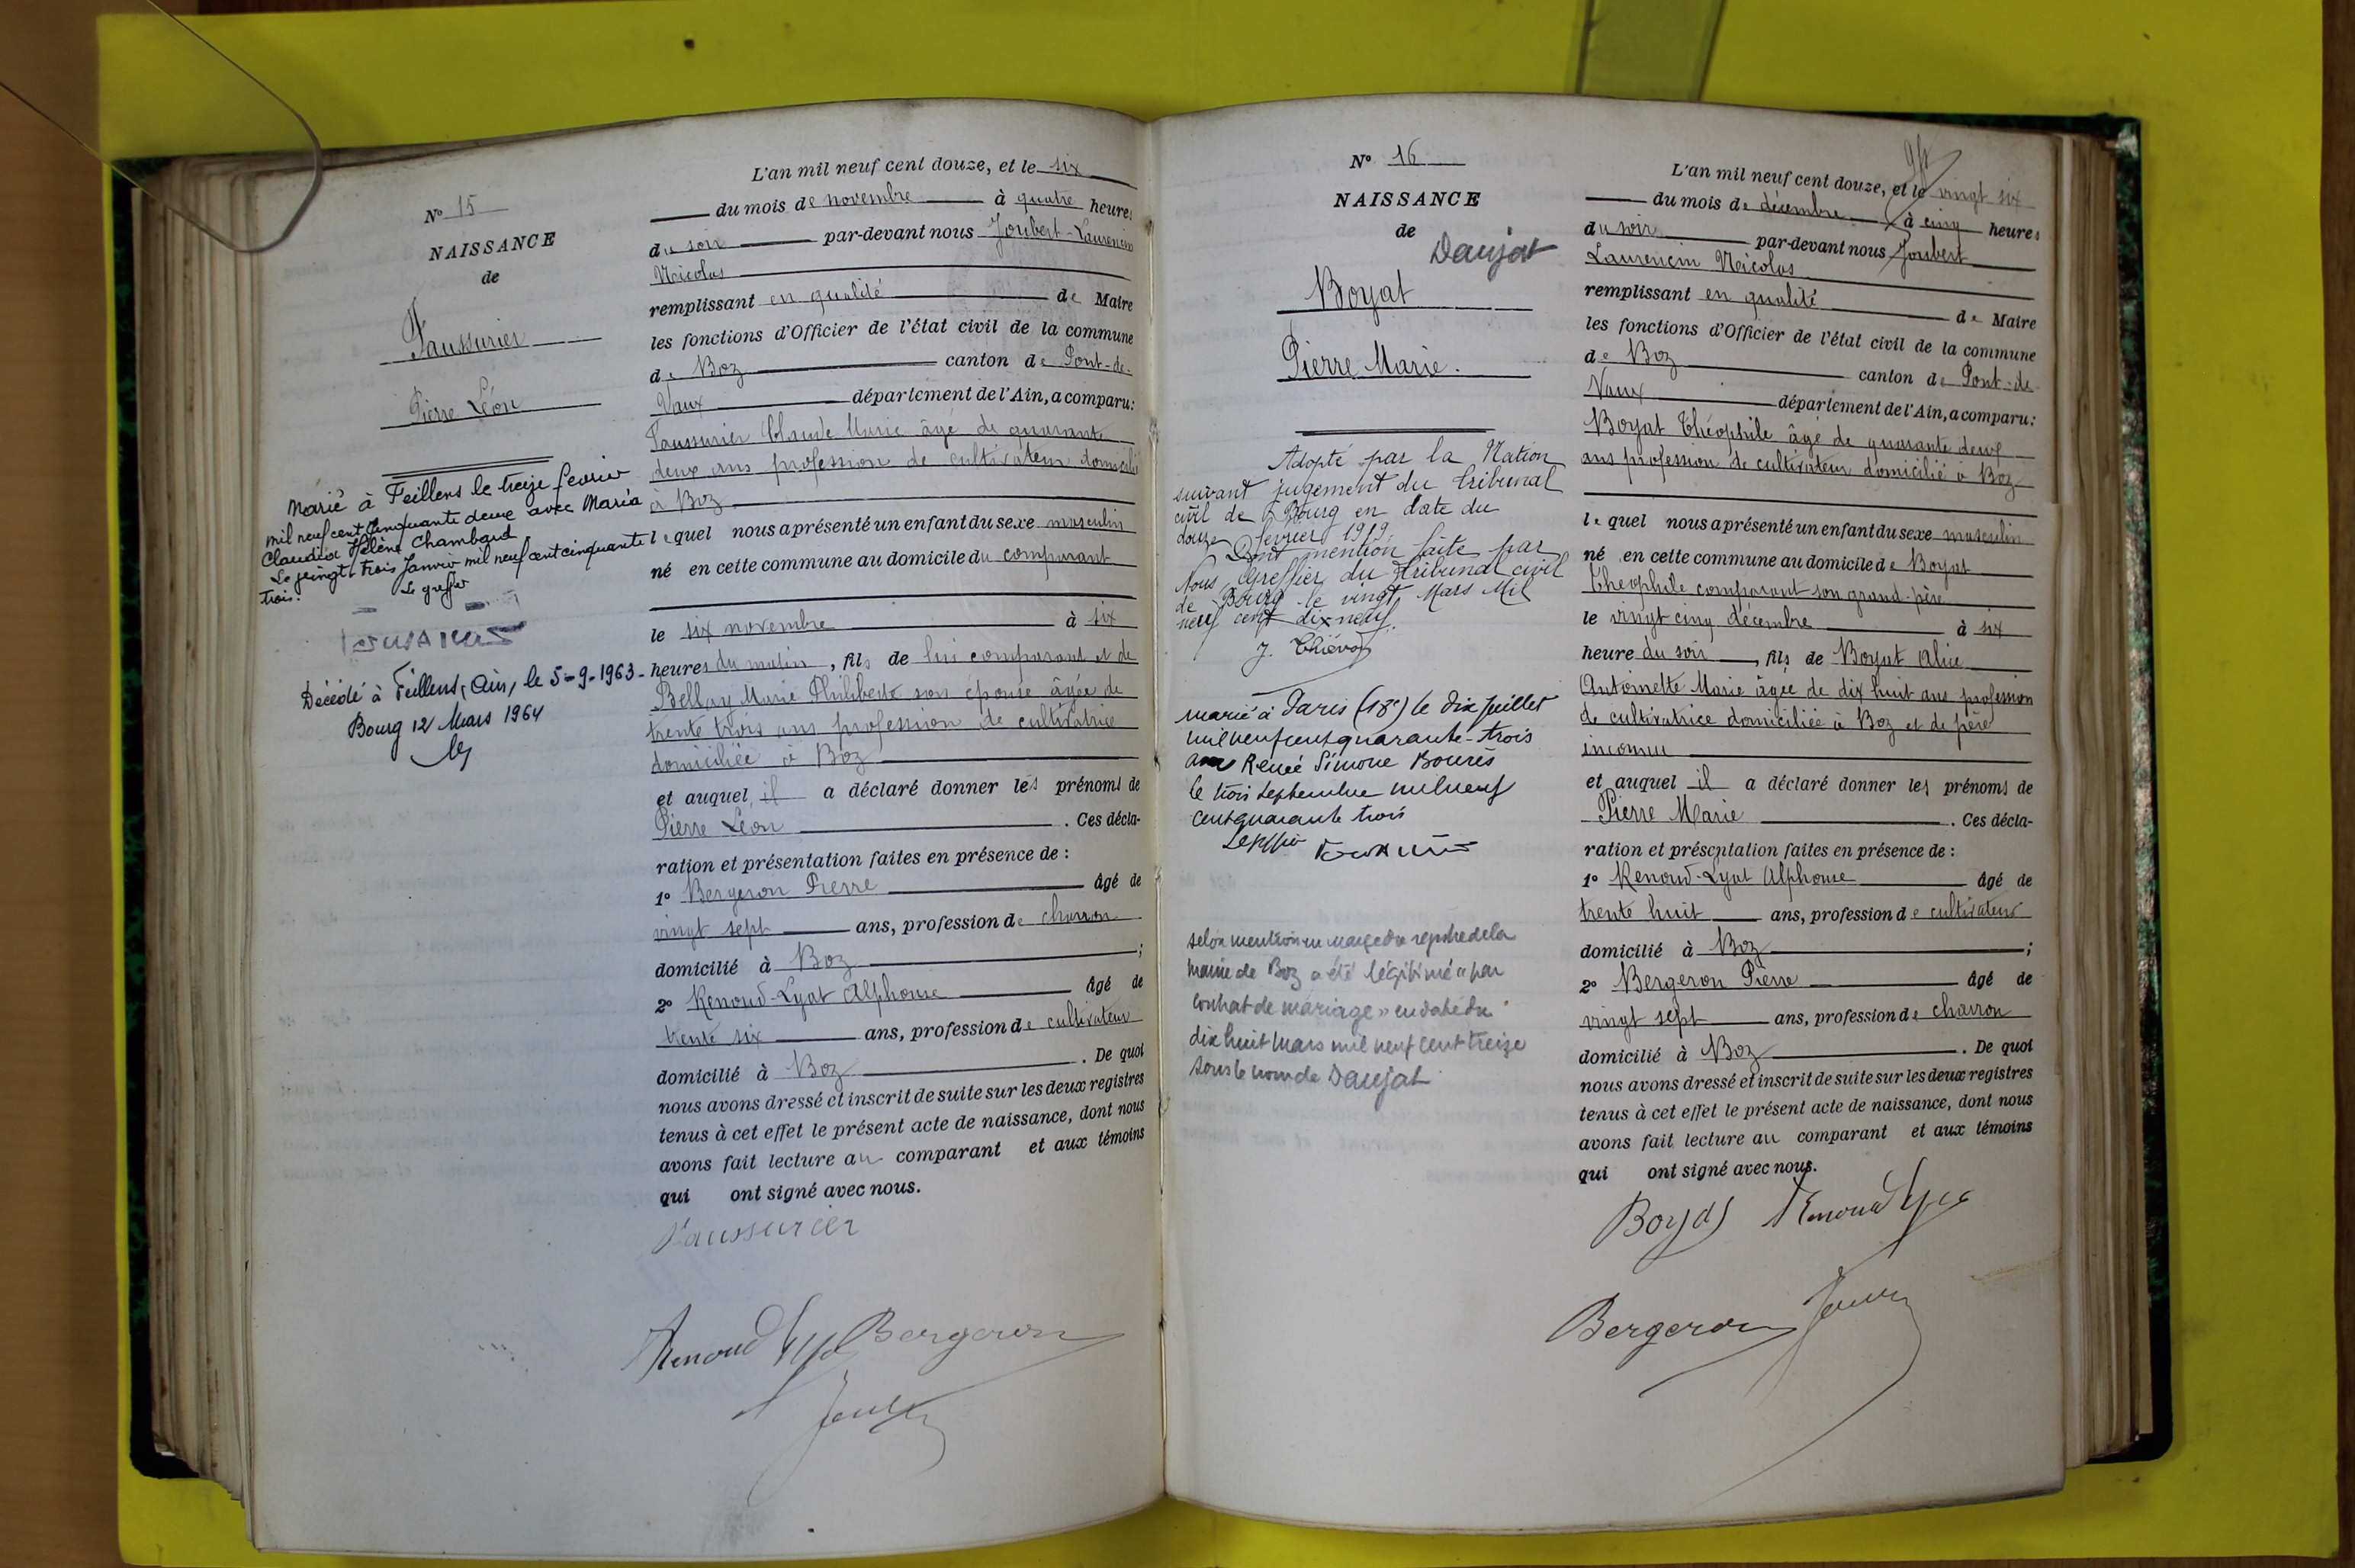 N° 15
NAISSANCE
de
Faussurier
Pierre Léon
Marié à Feillens le treize fevrier
mil neuf cent cinquante deux avec Maria
Claudia Hélène Chambard
Le vingt-trois Janvier mil neuf cent cinquante
trois.
Le greffier
Décédé à Feillens, Ain, le 5-9-1963-
Bourg 12 Mars 1964
L'an mil neuf cent douze, et le six
du mois de novembre à quatre heures
du soir par-devant nous Joubert-Laurencin
Nicolas
remplissant en qualité de Maire
les fonctions d'Officier de l'état civil de la commune
de Boz canton de Pont-de-
Vaux département de l'Ain, a comparu:
Faussurier Claude Marie âgé de quarante
deux ans profession de cultivateur domicilié
à Boz
lequel nous a présenté un enfant du sexe masculin
né en cette commune au domicile du comparant
le six novembre à six
heures du matin, fils de lui comparant et de
Bellay Marie Philiberte son épouse âgée de
trente trois ans profession de cultivatrice
domiciliée à Boz
et auquel il a déclaré donner les prénoms de
Pierre Léon . Ces décla-
ration et présentation faites en présence de :
1° Bergeron Pierre âgé de
vingt sept ans, profession de charron
domicilié à Boz ;
2° Renoud-Lyat Alphonse âgé de
trente six ans, profession de cultivateur
domicilié à Boz . De quoi
nous avons dressé et inscrit de suite sur les deux registres
tenus à cet effet le présent acte de naissance, dont nous
avons fait lecture au comparant et aux témoins
qui ont signé avec nous.
Faussurier
Renoud Lya Bergeron
N° 16
NAISSANCE
de
Daujat
Boyat
Pierre Marie.
Adopté par la Nation
suivant jugement du tribunal
civil de Bourg en date du
douze fevrier 1919.
Dont mention faite par
Nous Greffier du tribunal civil
de Bourg le vingt Mars Mil
neuf cent dix neuf.
marié à Paris (18e) le dix juillet
mil neuf cent quarante-trois
avec Renée Simone Bourès
le trois septembre mil neuf
cent quarante trois
selon mention en marge du registre de la
mairie de Boz a été légitimé "par
contrat de mariage" en date du
dix huit mars mil neuf cent treize
sous le nom de Daujat
94
L'an mil neuf cent douze, et le vingt six
du mois de décembre à cinq heures
du soir par-devant nous Joubert
Laurencin Nicolas
remplissant en qualité de Maire
les fonctions d'Officier de l'état civil de la commune
de Boz canton de Pont-de
Vaux département de l'Ain, a comparu:
Boyat Théophile âgé de quarante deux
ans profession de cultivateur domicilié à Boz
lequel nous a présenté un enfant du sexe masculin
né en cette commune au domicile de Boyat
Théophile comparant son grand-père
le vingt cinq décembre à six
heure du soir, fils de Boyat Alice
Antoinette Marie âgée de dix huit ans profession
de cultivatrice domiciliée à Boz et de père
inconnu
et auquel il a déclaré donner les prénoms de
Pierre Marie . Ces décla-
ration et présentation faites en présence de :
1° Renoud-Lyat Alphonse âgé de
trente huit ans, profession de cultivateur
domicilié à Boz ;
2° Bergeron Pierre âgé de
vingt sept ans, profession de charron
domicilié à Boz . De quoi
nous avons dressé et inscrit de suite sur les deux registres
tenus à cet effet le présent acte de naissance, dont nous
avons fait lecture au comparant et aux témoins
qui ont signé avec nous.
Boyat Renoud Lya
Bergeron